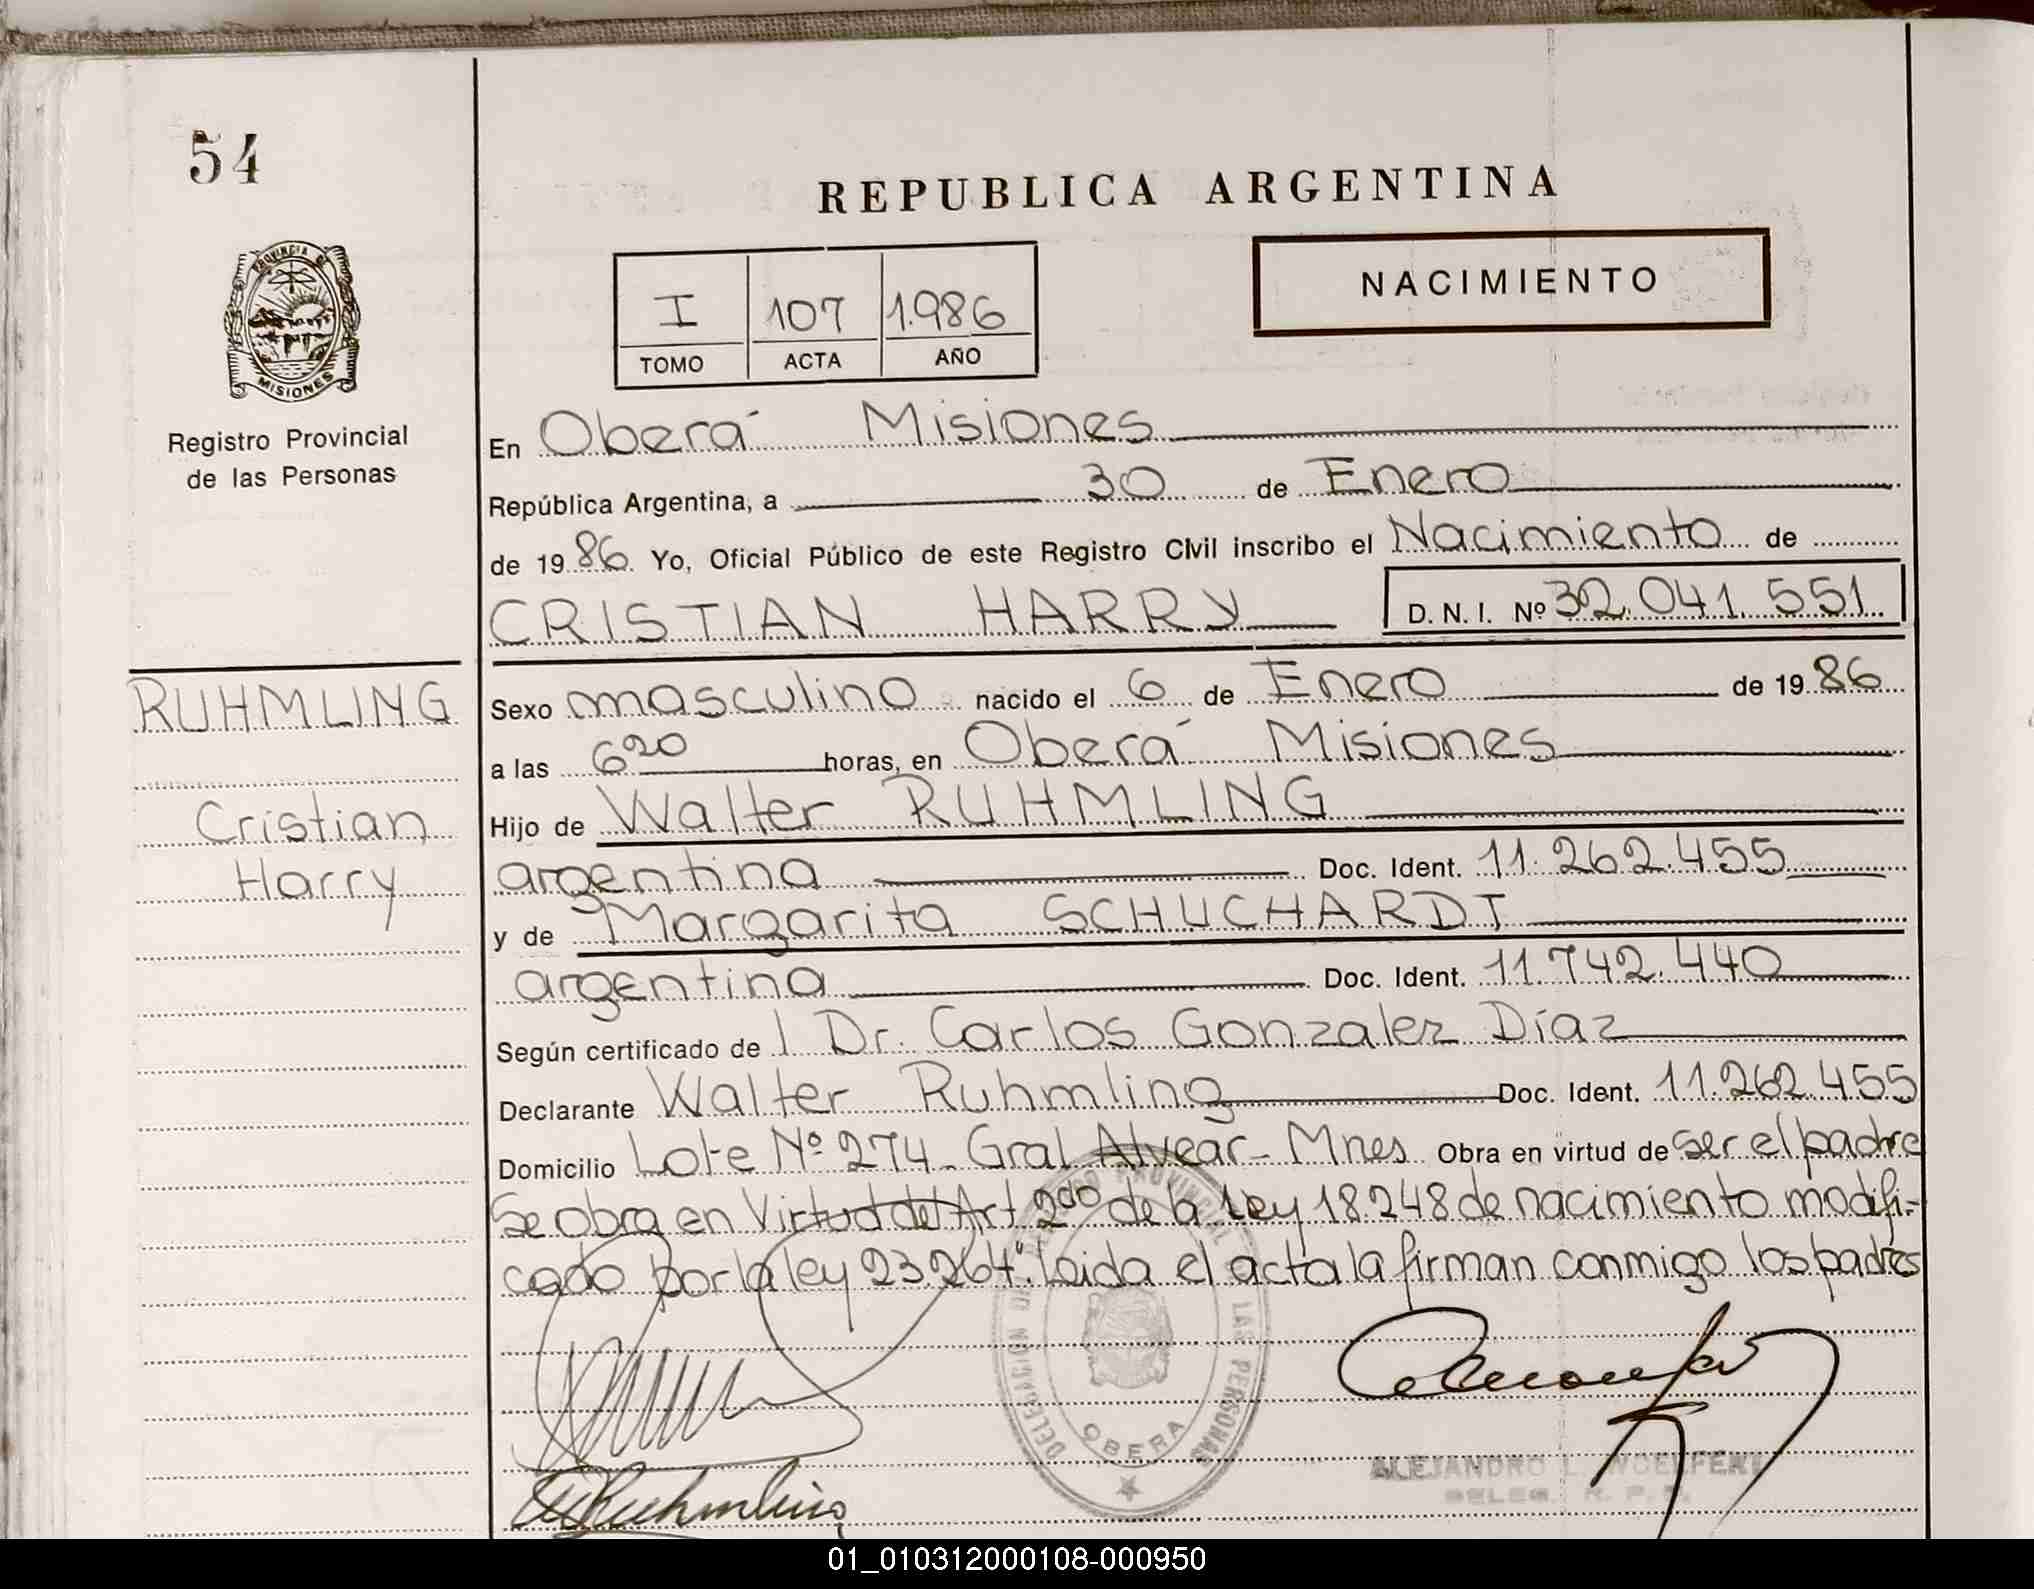 54
REPUBLICA ARGENTINA
NACIMIENTO
I 107 1.986
TOMO ACTA AÑO
PROVINCIA DE
MISIONES
Registro Provincial
de las Personas
En Oberá Misiones
República Argentina, a 30 de Enero
de 1986 Yo, Oficial Público de este Registro Civil inscribo el Nacimiento de
CRISTIAN HARRY D. N. I. Nº 32.041.551
RUHMLING
Cristian
Harry
Sexo masculino nacido el 6 de Enero de 1986
a las 6 20 horas, en Oberá Misiones
Hijo de Walter RUHMLING
argentina Doc. Ident. 11.262.455
y de Margarita SCHUCHARDT
argentina Doc. Ident. 11.742.440
Según certificado de l Dr. Carlos Gonzalez Díaz
Declarante Walter Ruhmling Doc. Ident. 11.262.455
Domicilio Lote Nº 274 - Gral Alvear - Mnes Obra en virtud de ser el padre
Se obra en Virtud del Art 2do de la Ley 18.248 de nacimiento modifi-
cado por la ley 23.264". Leida el acta la firman conmigo los padres
DELEGACION DE REGISTRO PROVINCIAL DE LAS PERSONAS
OBERA
Ruhmling
ALEJANDRO L. WOELFERT
DELEG. R. P. P.
01_010312000108-000950